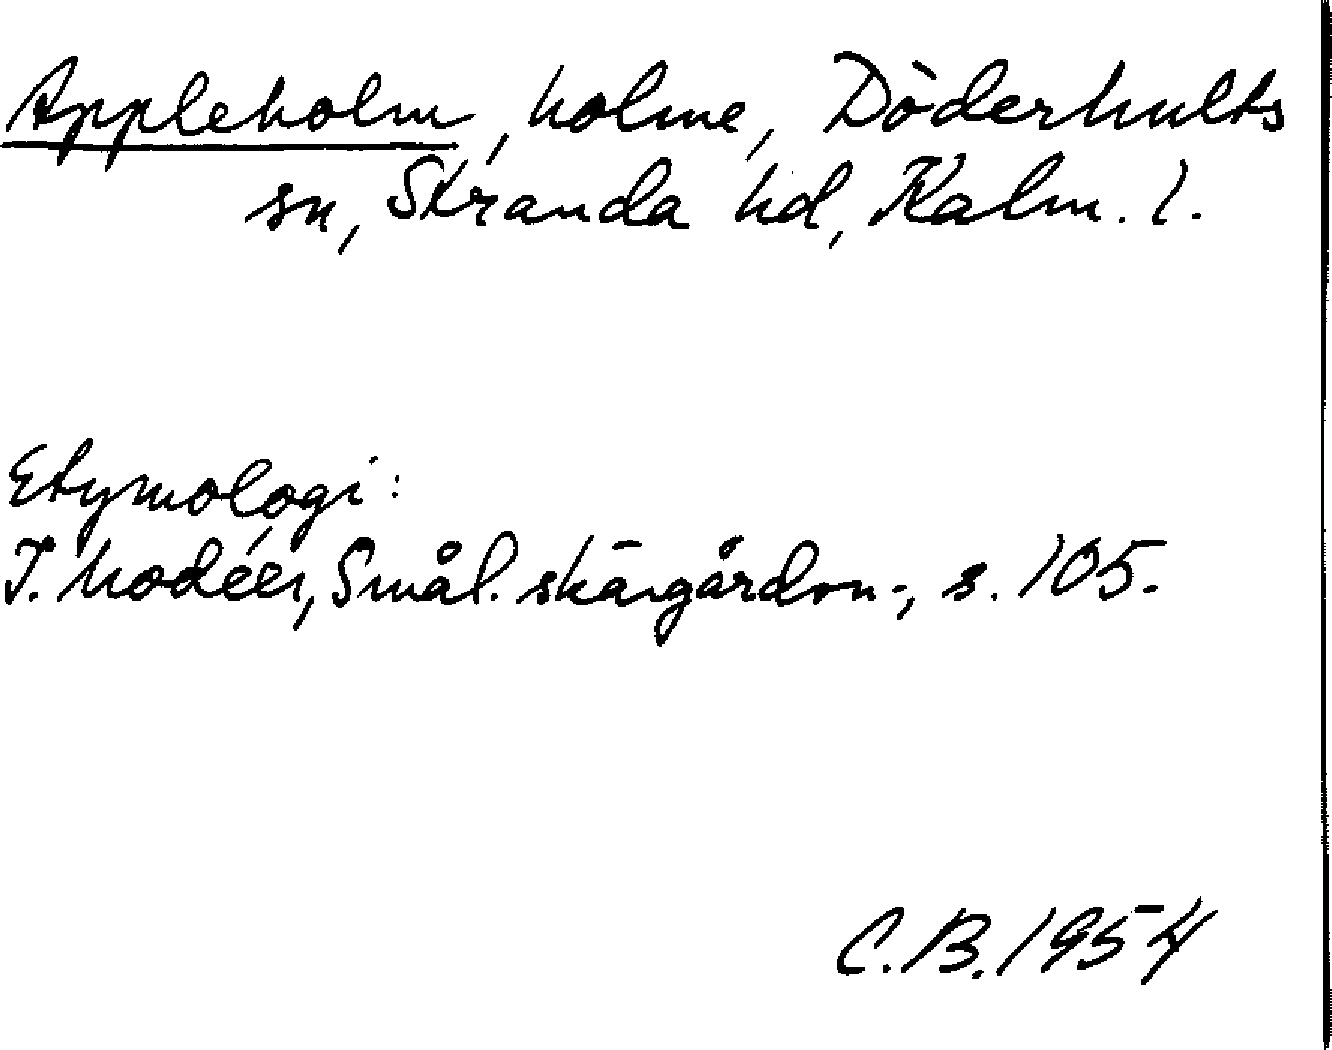 Appleholm, holme, Döderhults
sn, Stranda hd, Kalm. l.
Etymologi:
I. Modéer, Smål. skärgårdsn., s. 105.
C.B. 1954